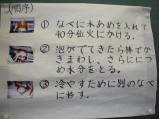 (順序)
① なべに木めめを入れて
40分位火にかける。
② 泡がでてきたら棒でか
きまわし、さらににつ
め水分をとる。
③ 冷やすために別のなべ
に移す。